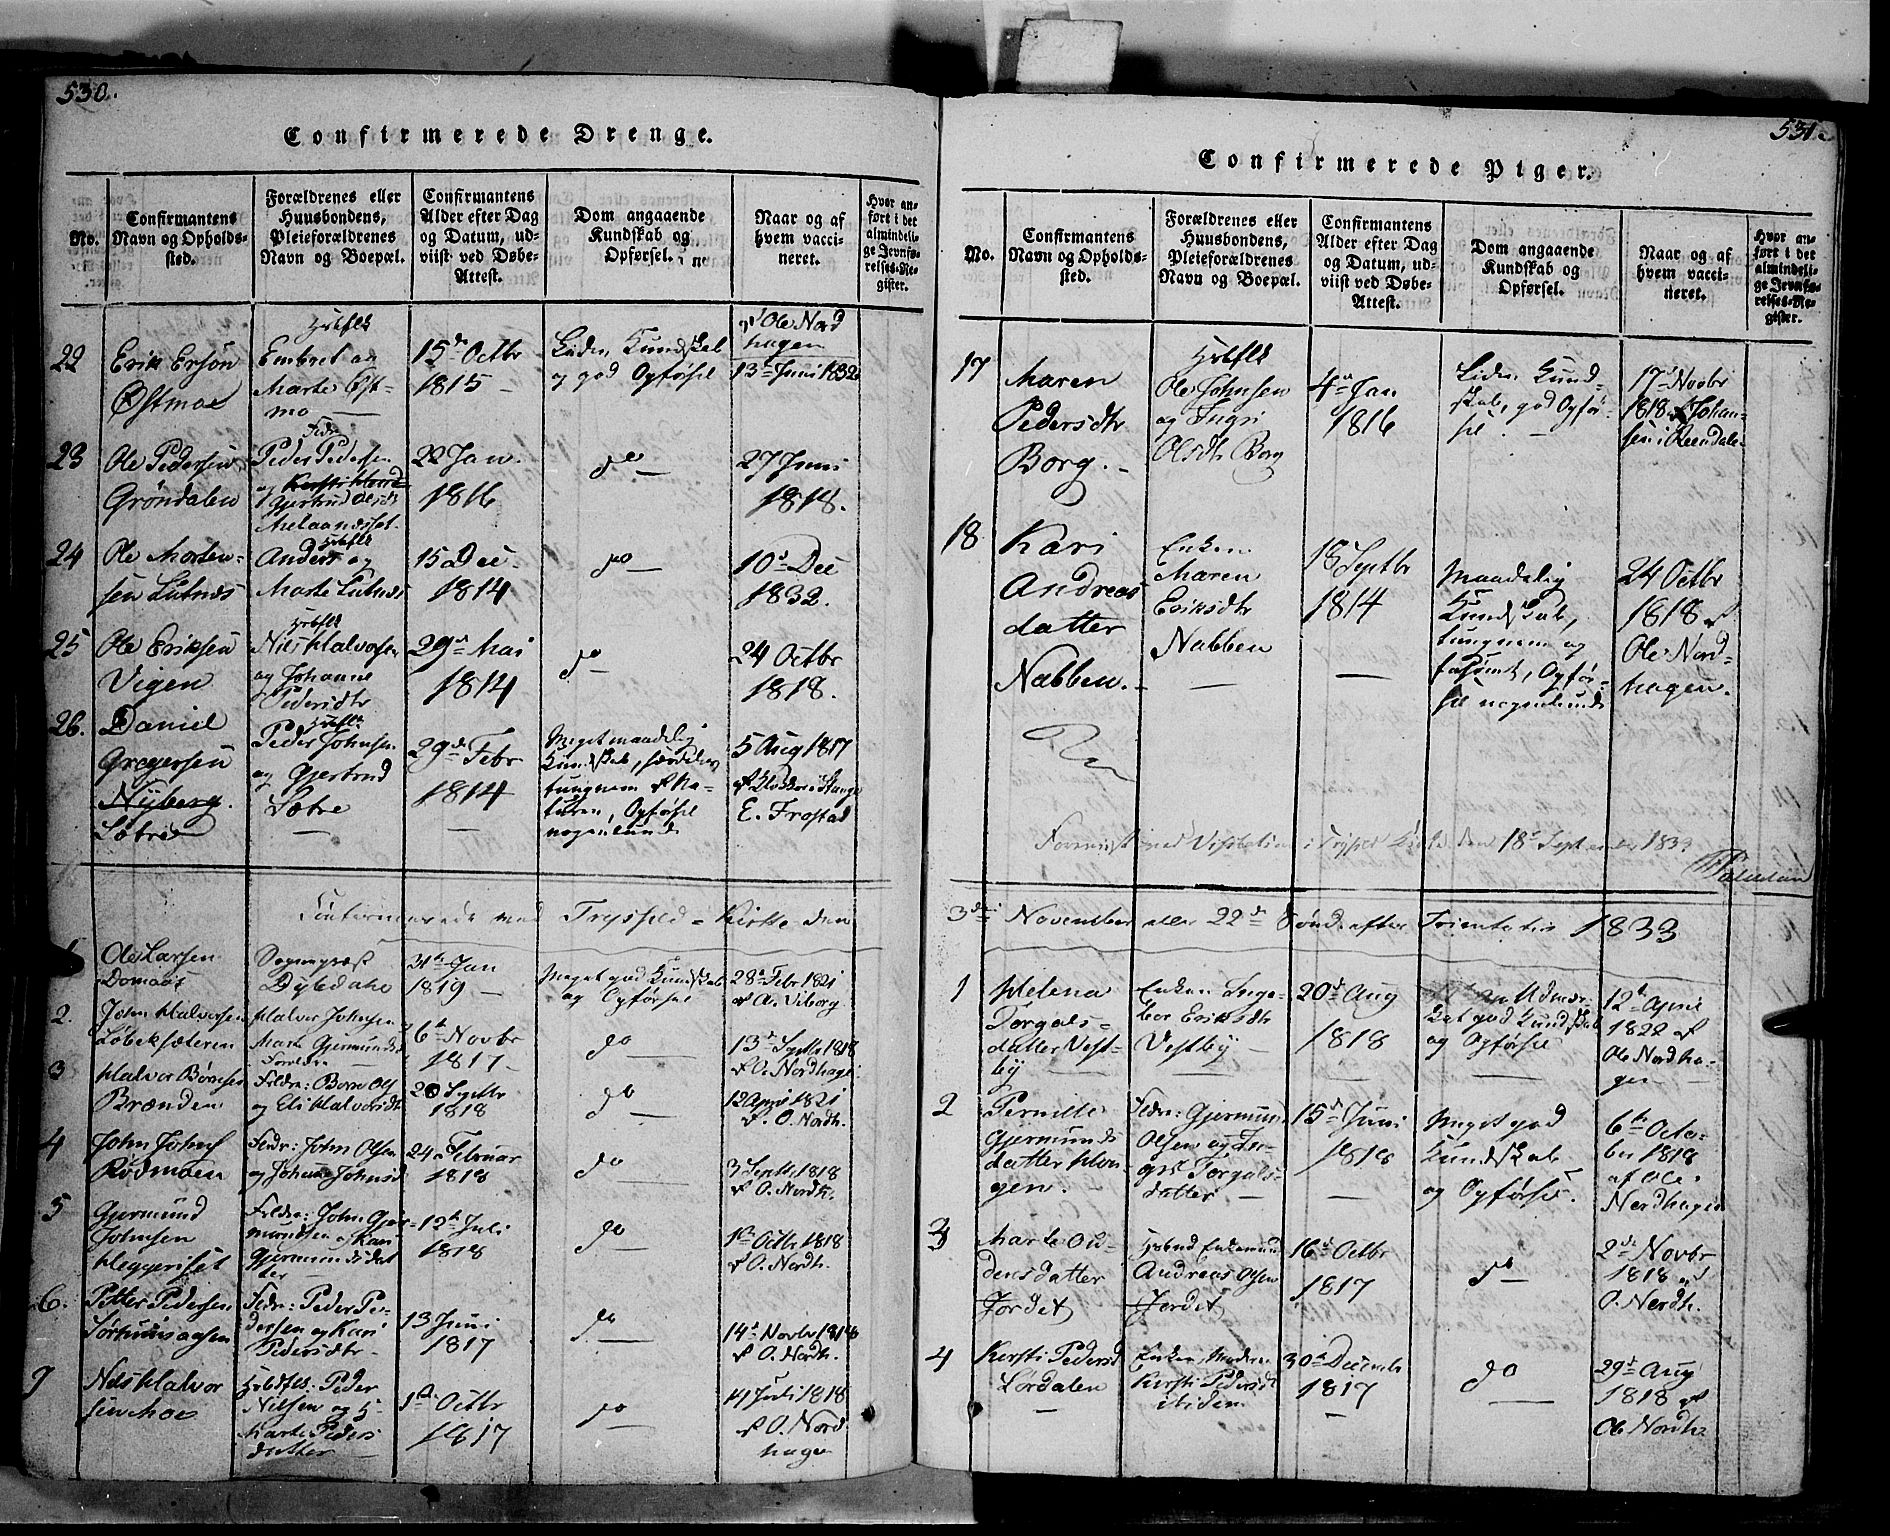 530.
Confirmerede Drenge.
No.
Confirmantens
Navn og Opholds-
sted.
Forældrenes eller
Huusbondens,
Pleieforældrenes
Navn og Boepæl.
Confirmantens
Alder efter Dag
og Datum, ud-
viist ved Døbe-
Attest.
Dom angaaende
Kundskab og
Opførsel.
Naar og af
hvem vacci-
neret.
Hvor an-
ført i det
almindeli-
ge Jevnfø-
relses-Re-
gister.
22
Erik Ersøn
Østmoe
Embret og
Marte Øst-
mo
15de Octbr
1815 -
Liden Kundskab
og god Opførsel
Ole Nord
hagen
13de Juni 1832
23
Ole Pedersen
Grøndalen
Peder Pedersen
og
Gjertrud Olsdtr
22 Jan.
1816
do
27 Juni
1818.
24
Ole Morten-
sen Lutnes
Anders og
Marte Lutnes
15 Dec.
1814
do
10de Dec
1832.
25
Ole Eriksen
Vigen
Nils Halvorsen
og Johanne
Pedersdtr
29de Mai
1814
do
24 Octbr
1818.
26.
Daniel
Gregersen
Nyberg.
Peder Johnsen
og Gjertrud
Sætre
29de Febr
1814
Meget maadelig
Kundskab, særdeles
tungnem af Na-
turen, Opførsel
nogenlunde
5 Aug 1817
E. Frostad
med Trysild = Kirke den
1
Ole Larsen
Domaas
31te Jan
1819 -
Meget god Kundskab
og Opførsel
28de Febr 1821
af A. Viborg
2.
John Halvorsen
Halvor Johnsen
6te Novbr
1817
do
13de Septbr 1818
af O. Nordhagen
3
Halvor Børresen
Brænden
Fældr: Børre Ols
og Eli Halvorsdtr
20 Septbr
1818
do
12 April 1821
af O. Nordh.
4
John Johns
Rødmoen
Fældr: John Olsen
og Johanne Johnsd
24 Februar
1818
do
3 Septbr 1818
af O. Nordh.
5
Gjermund
Johnsen
Heggeriset
Fældr: John Gjer-
mundsen og Kari
Gjermundsdat
ter
12te Juli
1818
do
1ste Octbr 1818
af O. Nordh.
6.
Petter Pedersen
Fældr: Peder Pe-
dersen og Kari
Pedersdtr
13 Juni
1817
do
14de Novbr 1818
af O. Nordh.
7
Nils Halvor
sen Moe
Peder
Nilsen og
Marte Peders
datter
1ste Octbr
1817
do
11 Juli 1818
af O. Nord
hagen
531.
Confirmerede Piger.
No.
Confirmantens
Navn og Opholds-
sted.
Forældrenes eller
Huusbondens,
Pleieforældrenes
Navn og Boepæl.
Confirmantens
Alder efter Dag
og Datum, ud-
viist ved Døbe-
Attest.
Dom angaaende
Kundskab og
Opførsel.
Naar og af
hvem vacci-
neret.
Hvor an-
ført i det
almindeli-
ge Jevnfø-
relses-Re-
gister.
17
Maren
Pedersdtr
Borg.
Ole Johnsen
og Ingri
Olsdtr Borg
4de Jan
1816
Liden Kund-
skab, god Opfør-
sel.
17de Novbr
1818 af Johan-
sen i Reendalen
18
Kari
Andreas
datter
Nabben.
Enken
Maren
Eriksdtr
Nabben
18 Septbr
1814
Maadelig
Kundskab,
tungnem og
forsømt, Opfør-
sel nogenlunde
24 Octbr
1818 af
Ole Nord-
hagen.
Foreviist ved Visitation i Trysild Kirke den 18de September 1833
3die November eller 22de Sønd. efter Trinitatis 1833
1
Helena
Torgals-
datter Vest-
by
Enken Inge-
bor Eriksdtr
Vestby
20de Aug
1818
Udmær-
ket god Kundskab
og Opførsel
12te April
1822 af
Ole Nordha-
gen
2
Pernille
Gjermunds
datter Hou-
gen.
Fældr: Gjermun
Olsen og In-
gri Torgals-
datter
15de Juni
1818
Meget god
Kundskab
og Opførsel.
6te Octo-
ber 1818
af Ole
Nordhagen
3
Marte Ou-
densdatter
Jordet
Andreas Olsen
Jordet
16de Octbr
1817
do
2de Novbr
1818 af
O. Nordh.
4
Kersti Pedersd
Lørdalen
Enken, Moderen
Kersti Pedersdtr
ibidem
30te Decemb
1817
do
29de Aug
1818 af
Ole Nordh